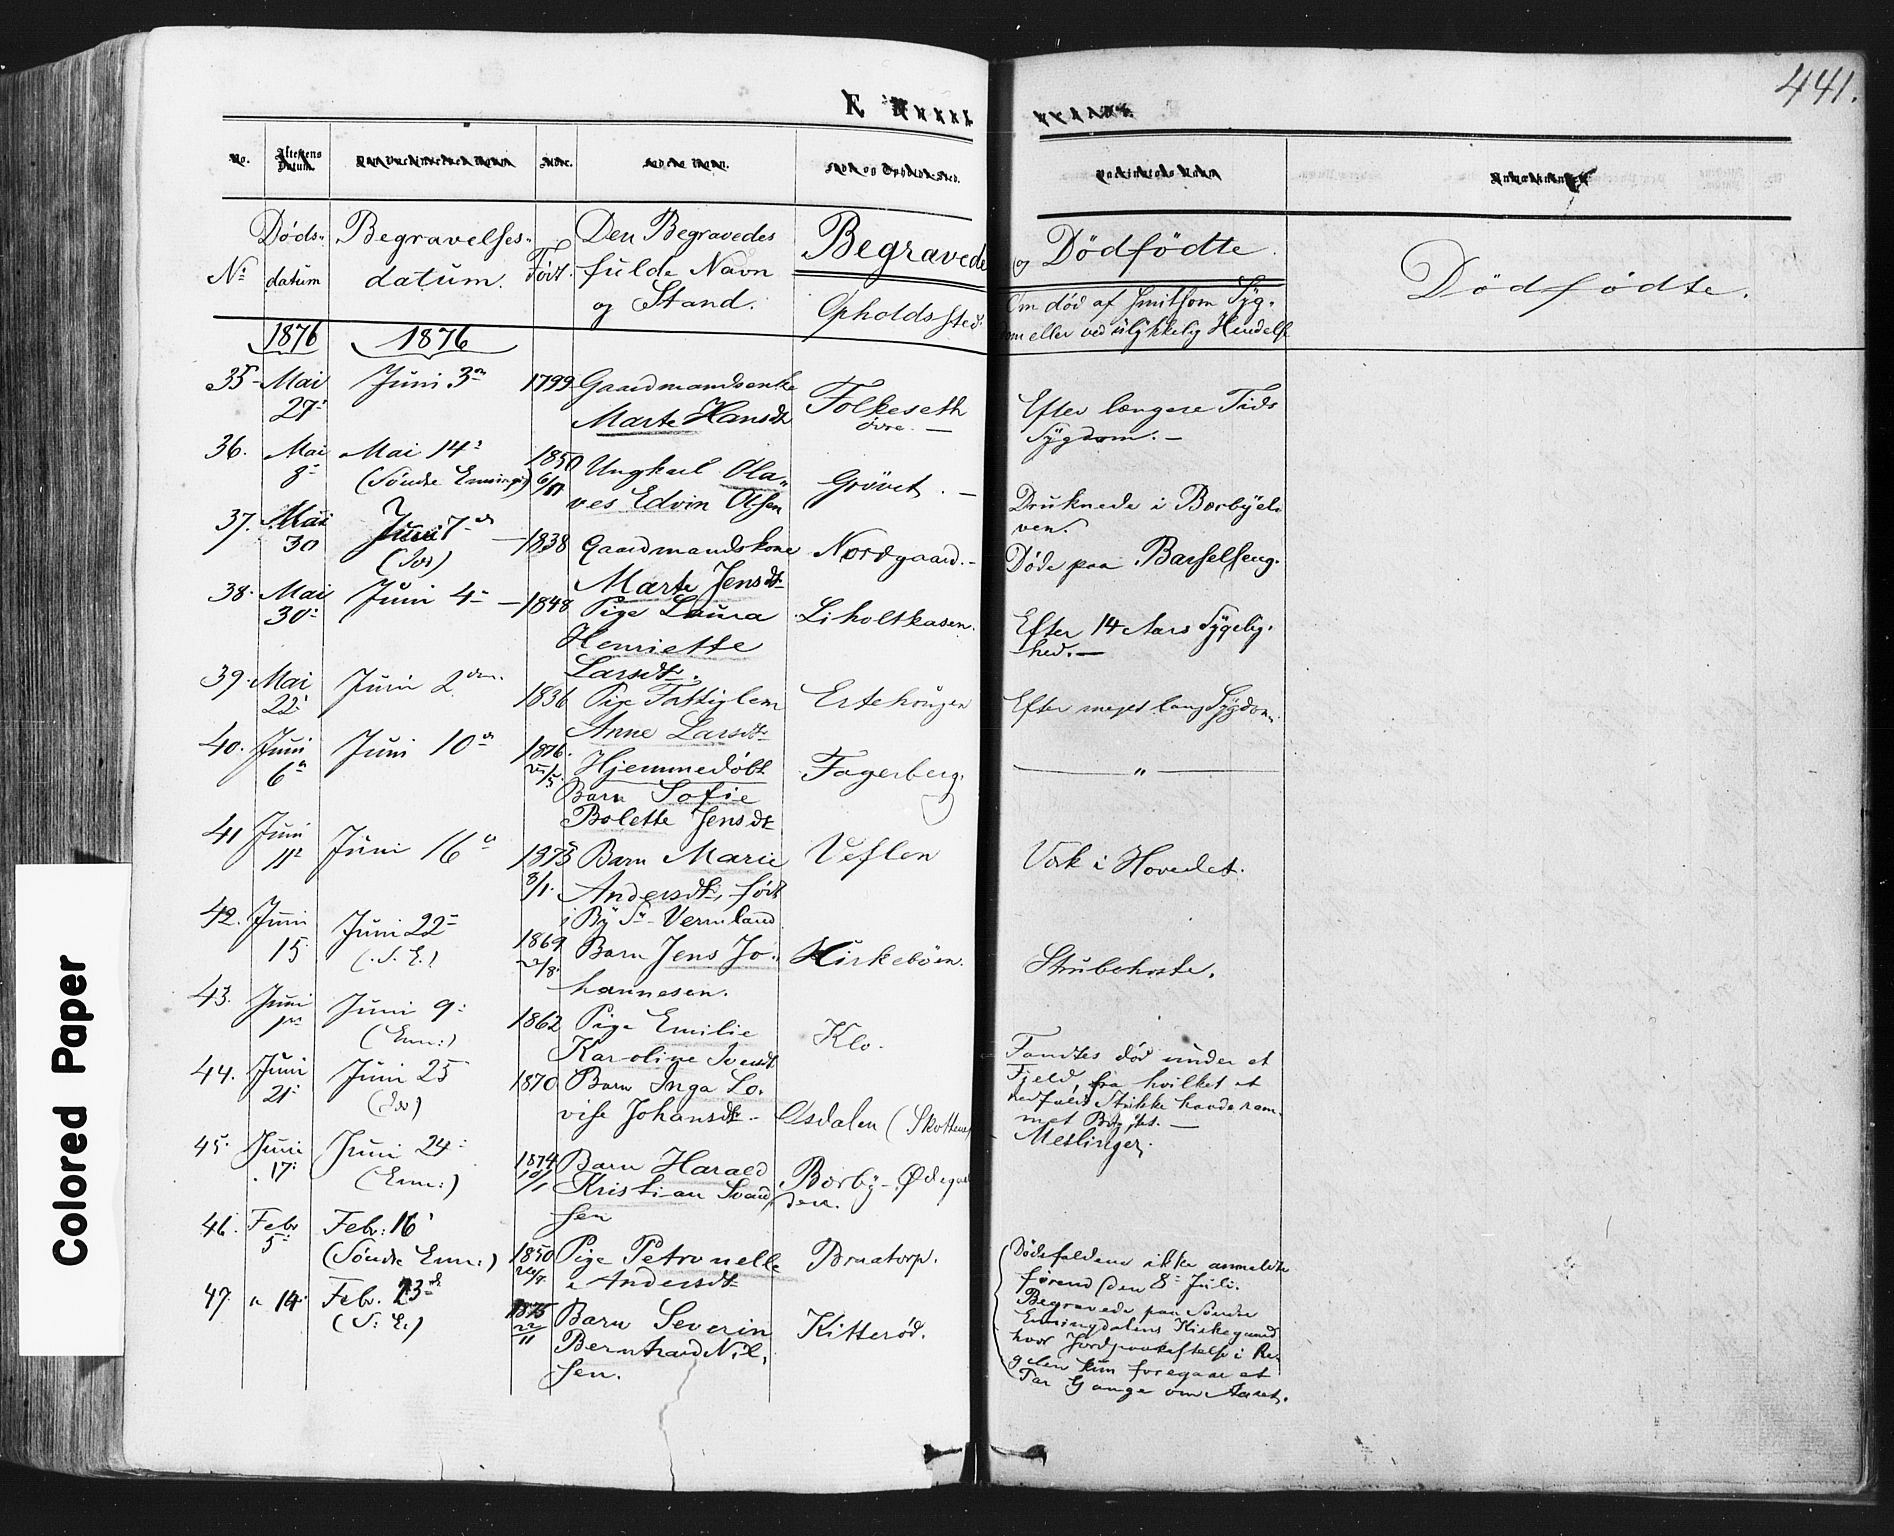 441.
No.
Døds-
datum
Begravelses-
datum.
Født.
Den Begravedes
fulde Navn
og Stand.
Begravede
og Dødfødte
Opholdssted.
Om død af smitsom Syg-
dom eller ved ulykkelig Hendelse
Dødfødte.
1876 1876
35- Mai 27: Juni 3. 1799 Gaardmandsenke
Marte Hansdt Folkeseth
øvre. —
Efter længere Tids
Sygdom. —
36. Mai 8: Mai 14:
(Søndre Enning:) 1850 Ungkarl Ola-
ves Edvin Olsen Grövet. —
Druknede i Børbyel-
ven.
37. Mai 30 Juni 7
(Ids) — 1838 Gaardmandskone
Marte Jensdt Nordgaard. -
Døde paa Barselseng.
38. Mai 30: Juni 4 — 1848 Pige Laura
Henriette
Larsdt. Liholtkasen.
Efter 14 Aars Sygelig-
hed. —
39. Mai 22: Juni 2den. 1836 Pige Fattiglem
Anne Larsdt Ertehougen
Efter meget lang Sygdom.
40. Juni 6 Juni 10 1876. Hjemmedøbt
Barn Sofie
Bolette Jensdt Fagerberg.
— " —
41 Juni 11 Juni 16 1873
3/1. Barn Marie
Andersdt, født
i By S Vermland Veflen
Værk i Hovedet.
42. Juni 15 Juni 22
(S. E.) 1869 Barn Jens Jo-
hannesen. Kirkebøen.
Strubehoste.
43. Juni Juni 9:
(Enn:) 1862 Pige Emilie
Karoline Svensdt Klo.
Fandtes død under et
Fjeld, fra hvilket et
nedfaldt Stykke havde ram-
met —
44. Juni 21: Juni 25
(Ids) 1870 Barn Inga Lo-
vise Johansdt - Osdalen (Skotten
Meslinger.
45. Juni 17: Juni 24
(Enn:) 1874 Barn Harald
Kristian Svend-
sen Børby- Ødegaar
den.
46. Febr 5: Febr: 16
(Søndre Enn:) 1850 Pige Petronelle
Andersdt Bruatorp.
47. " 14: Febr. 23
(S: E.) 1875
22/11 Barn Severin
Bernhard Nil-
sen. Kitterød.
Dødsfaldene ikke anmeldte
førend den 8: Juli.
Begravede paa Søndre
Enningdalens Kirkegaard
hvor Jordpaakastelse i Re-
gelen kun foregaar et
Par Gange om Aaret.
Colored Paper